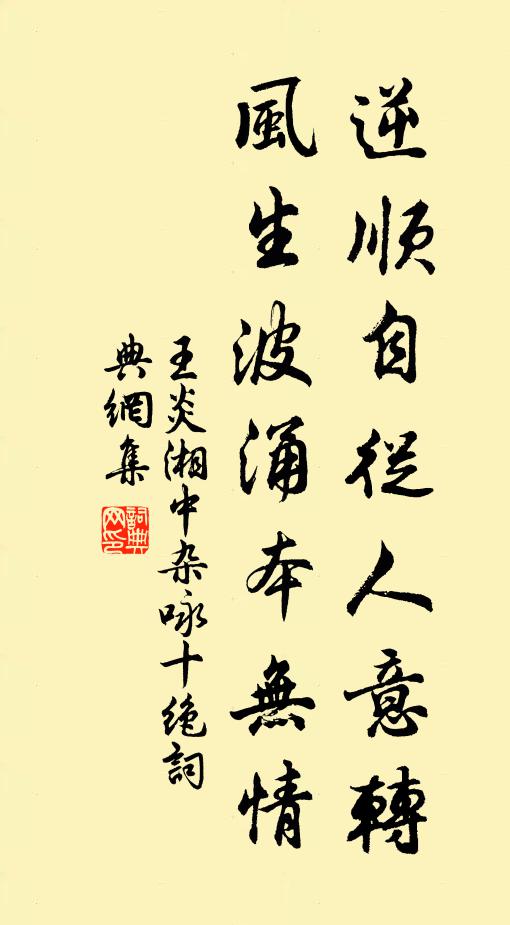 逆順自從人意轉
風生波涌本無情
王炎湘中杂咏十绝詞
典網集
詞典
网印